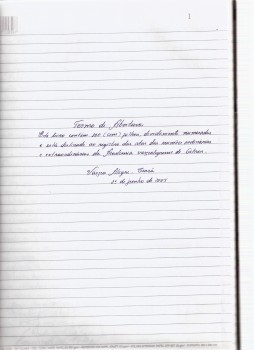 1
Termo de Abertura
Este livro contém 100 (cem) folhas devidamente numeradas
e está destinado ao registro das atas das reuniões ordinárias
e extraordinárias da Academia varzealegrense de Letras.
Várzea Alegre - Ceará
de junho de